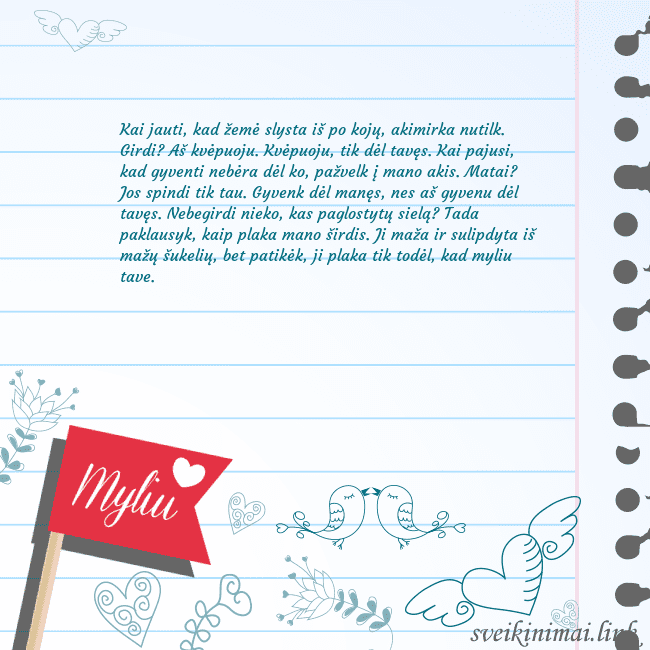 Kai jauti, kad žemė slysta iš po kojų, akimirka nutilk.
Girdi? Aš kvėpuoju. Kvėpuoju, tik dėl tavęs. Kai pajusi,
kad gyventi nebėra dėl ko, pažvelk į mano akis. Matai?
Jos spindi tik tau. Gyvenk dėl manęs, nes aš gyvenu dėl
tavęs. Nebegirdi nieko, kas paglostytų sielą? Tada
paklausyk, kaip plaka mano širdis. Ji maža ir sulipdyta iš
mažų šukelių, bet patikėk, ji plaka tik todėl, kad myliu
tave.
Myliu
sveikinimai.link